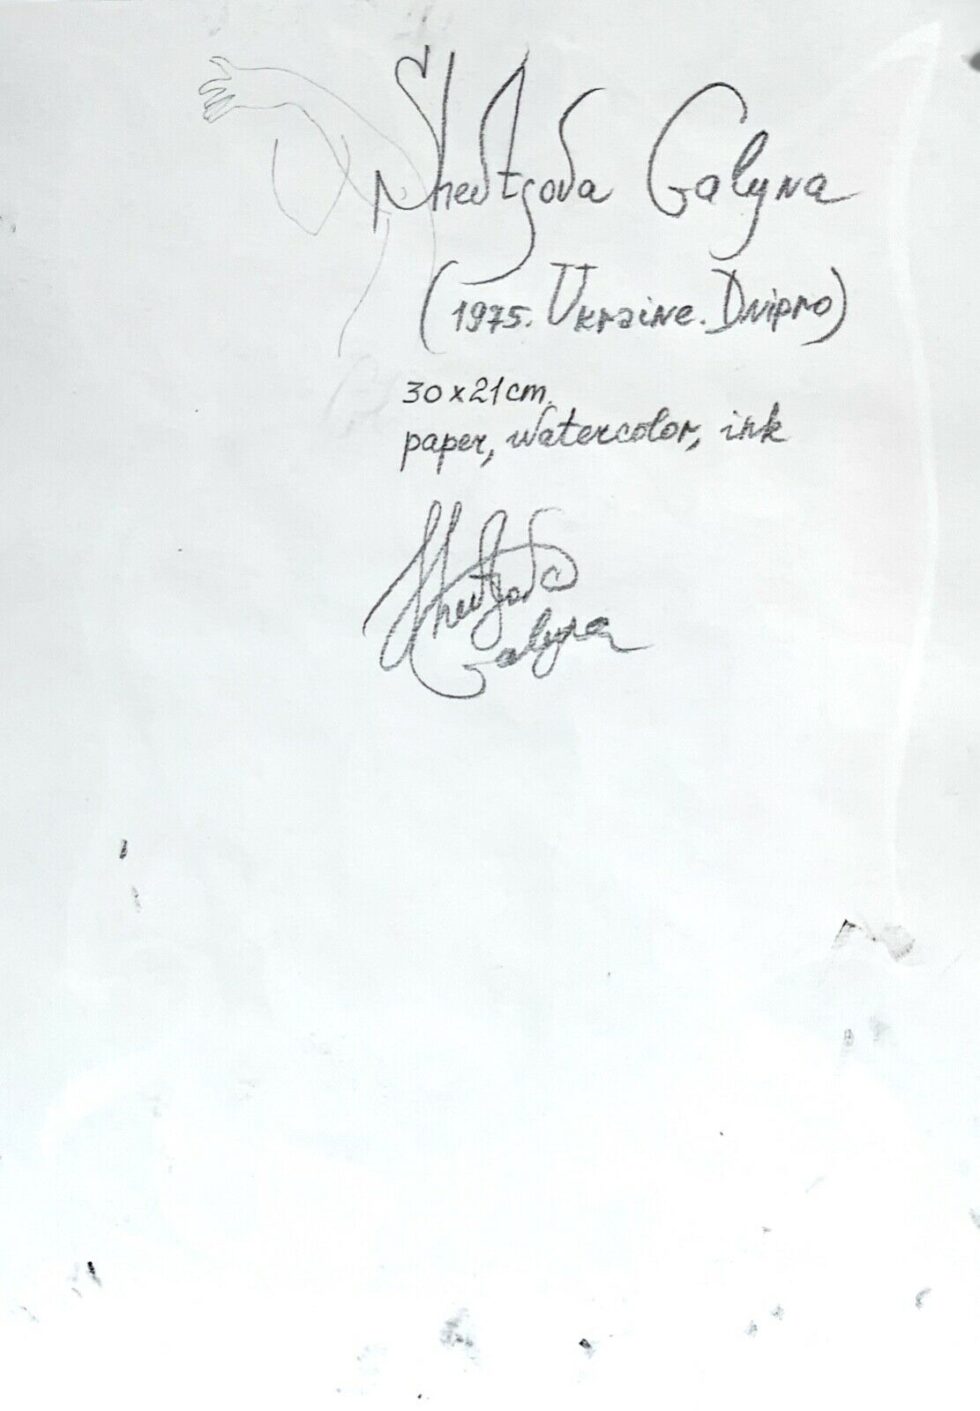 Shevtsova Galyna
(1975. Ukraine. Dnipro)
30x21cm.
paper, watercolor, ink
Shevtsova
Galyna